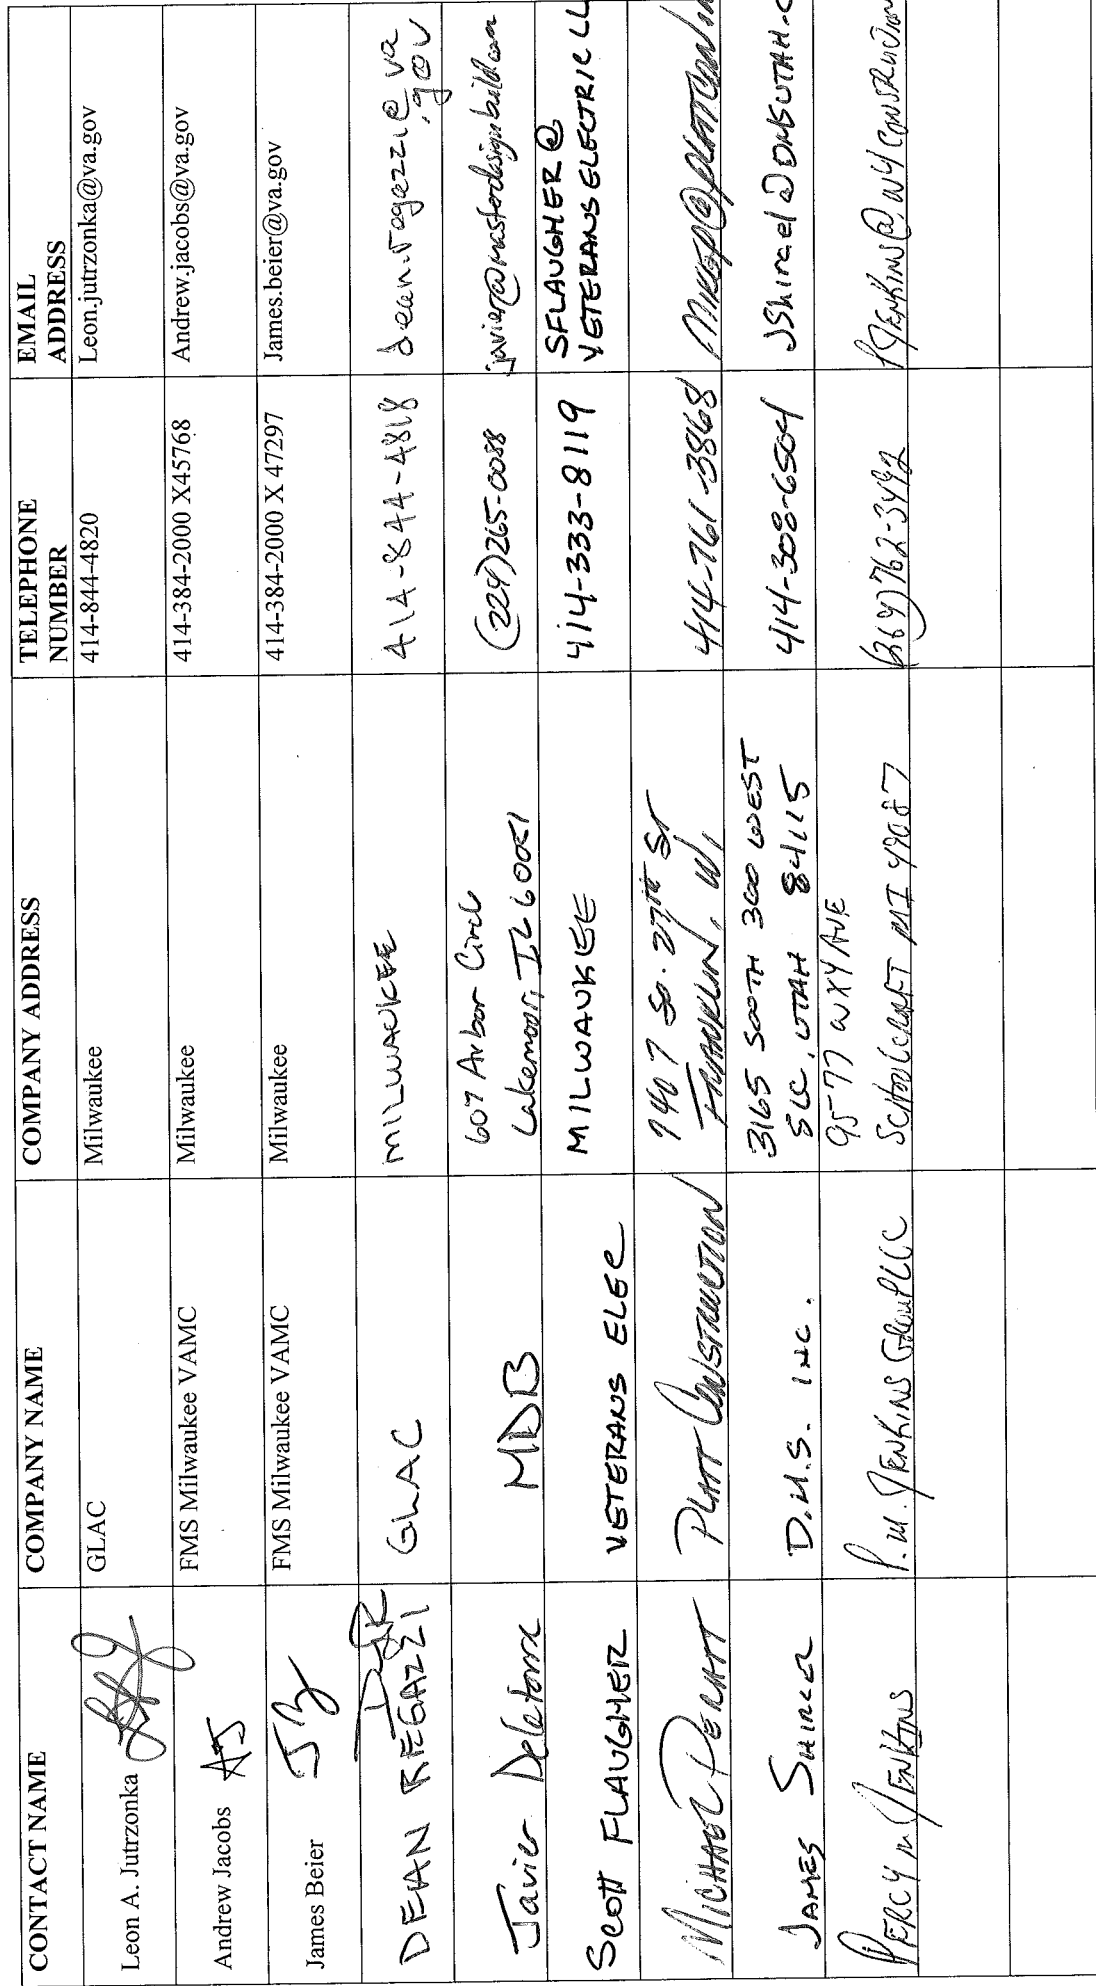 CONTACT NAME COMPANY NAME COMPANY ADDRESS TELEPHONE NUMBER EMAIL ADDRESS
Leon A. Jutrzonka GLAC Milwaukee 414-844-4820 Leon.jutrzonka@va.gov
Andrew Jacobs AJ FMS Milwaukee VAMC Milwaukee 414-384-2000 X45768 Andrew.jacobs@va.gov
James Beier JB FMS Milwaukee VAMC Milwaukee 414-384-2000 X 47297 James.beier@va.gov
DEAN REGAZZI DR GLAC MILWAUKEE 414-844-4818 dean.regazzi@va
.gov
Javier Deletorre MDB 607 Arbor Circle (224)265-0088 javier@masterdesignbuild.com
Lakemoor, IL 60051
SCOTT FLAUGHER VETERANS ELEC MILWAUKEE 414-333-8119 SFLAUGHER@
VETERANSELECTRICLL
MICHAEL PLATT CONSTRUCTION 7407 So. 27th St 414-761-3868
FRANKLIN, WI.
JAMES D.M.S. INC. 3165 SOUTH 300 WEST 414-308-6504 JShirael@DMSUTAH.C
SLC, UTAH 84115
PERCY M JENKINS P.M. JENKINS GROUP LLC 9577 W XY AVE (269)762-3492
SCHOOLCRAFT MI 49087